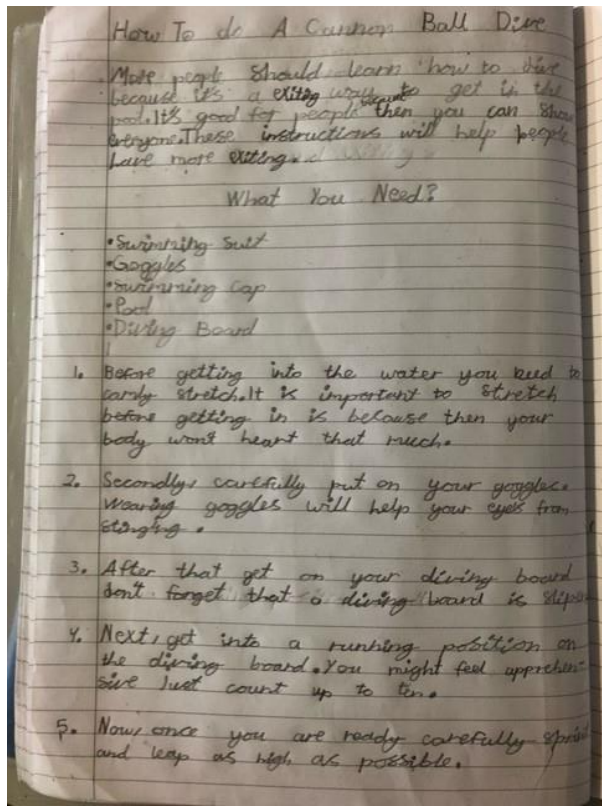 How To do A Cannon Ball Dive
More people should learn how to dive
because it's a exiting way to get in the
pool. It's good for people because then you can show
everyone. These instructions will help people
have more exiting.
What You Need?
• Swimming Suit
• Goggles
• Swimming Cap
• Pool
• Diving Board
1. Before getting into the water you need to
stretch. It is important to stretch
before getting in is because then your
body won't heart that much.
2. Secondly, carefully put on your goggles.
Wearing goggles will help your eyes from
stinging.
3. After that get on your diving board
don't forget that a diving board is
4. Next, get into a running position on
the diving board. You might feel apprehen-
sive Just count up to ten.
5. Now, once you are ready carefully sprint
and leap as high as possible.